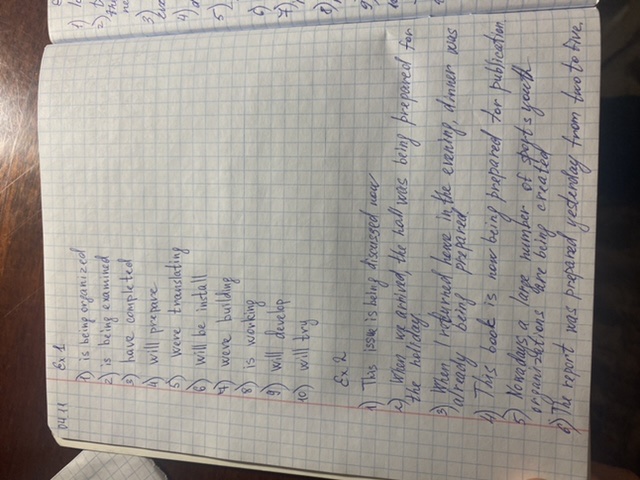 04.11 Ex 1
1) is being organized
2) is being examined
3) have completed
4) will prepare
5) were translating
6) will be install
7) were building
8) is working
9) will develop
10) will try
Ex 2
1) This issue is being discussed now
2) When we arrived, the hall was being prepared for
the holiday
3) When I returned home in the evening, dinner was
already being prepared
4) This book is now being prepared for publication.
5) Nowadays a large number of sports youth
organizations are being created
6) The report was prepared yesterday from two to five.